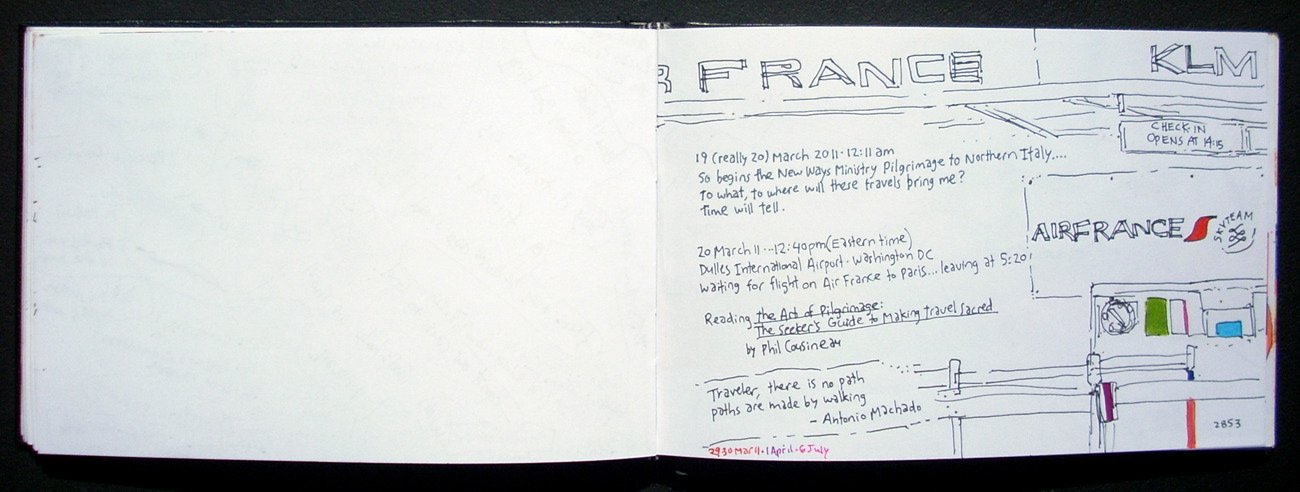 R FRANCE
KLM
CHECK-IN
OPENS AT 14:15
19 (really 20) March 2011 · 12:11 am
So begins the New Ways Ministry Pilgrimage to Northern Italy....
To what, to where will these travels bring me?
Time will tell.
20 March 11 ... 12:40pm (Eastern time)
Dulles International Airport · Washington DC
waiting for flight on Air France to Paris... leaving at 5:20
AIRFRANCE
SKYTEAM
Reading the Art of Pilgrimage:
The Seeker's Guide to Making Travel Sacred
by Phil Cousineau
Traveler, there is no path
paths are made by walking
- Antonio Machado
2853
2930 Mar 11 · 1 April · 6 July